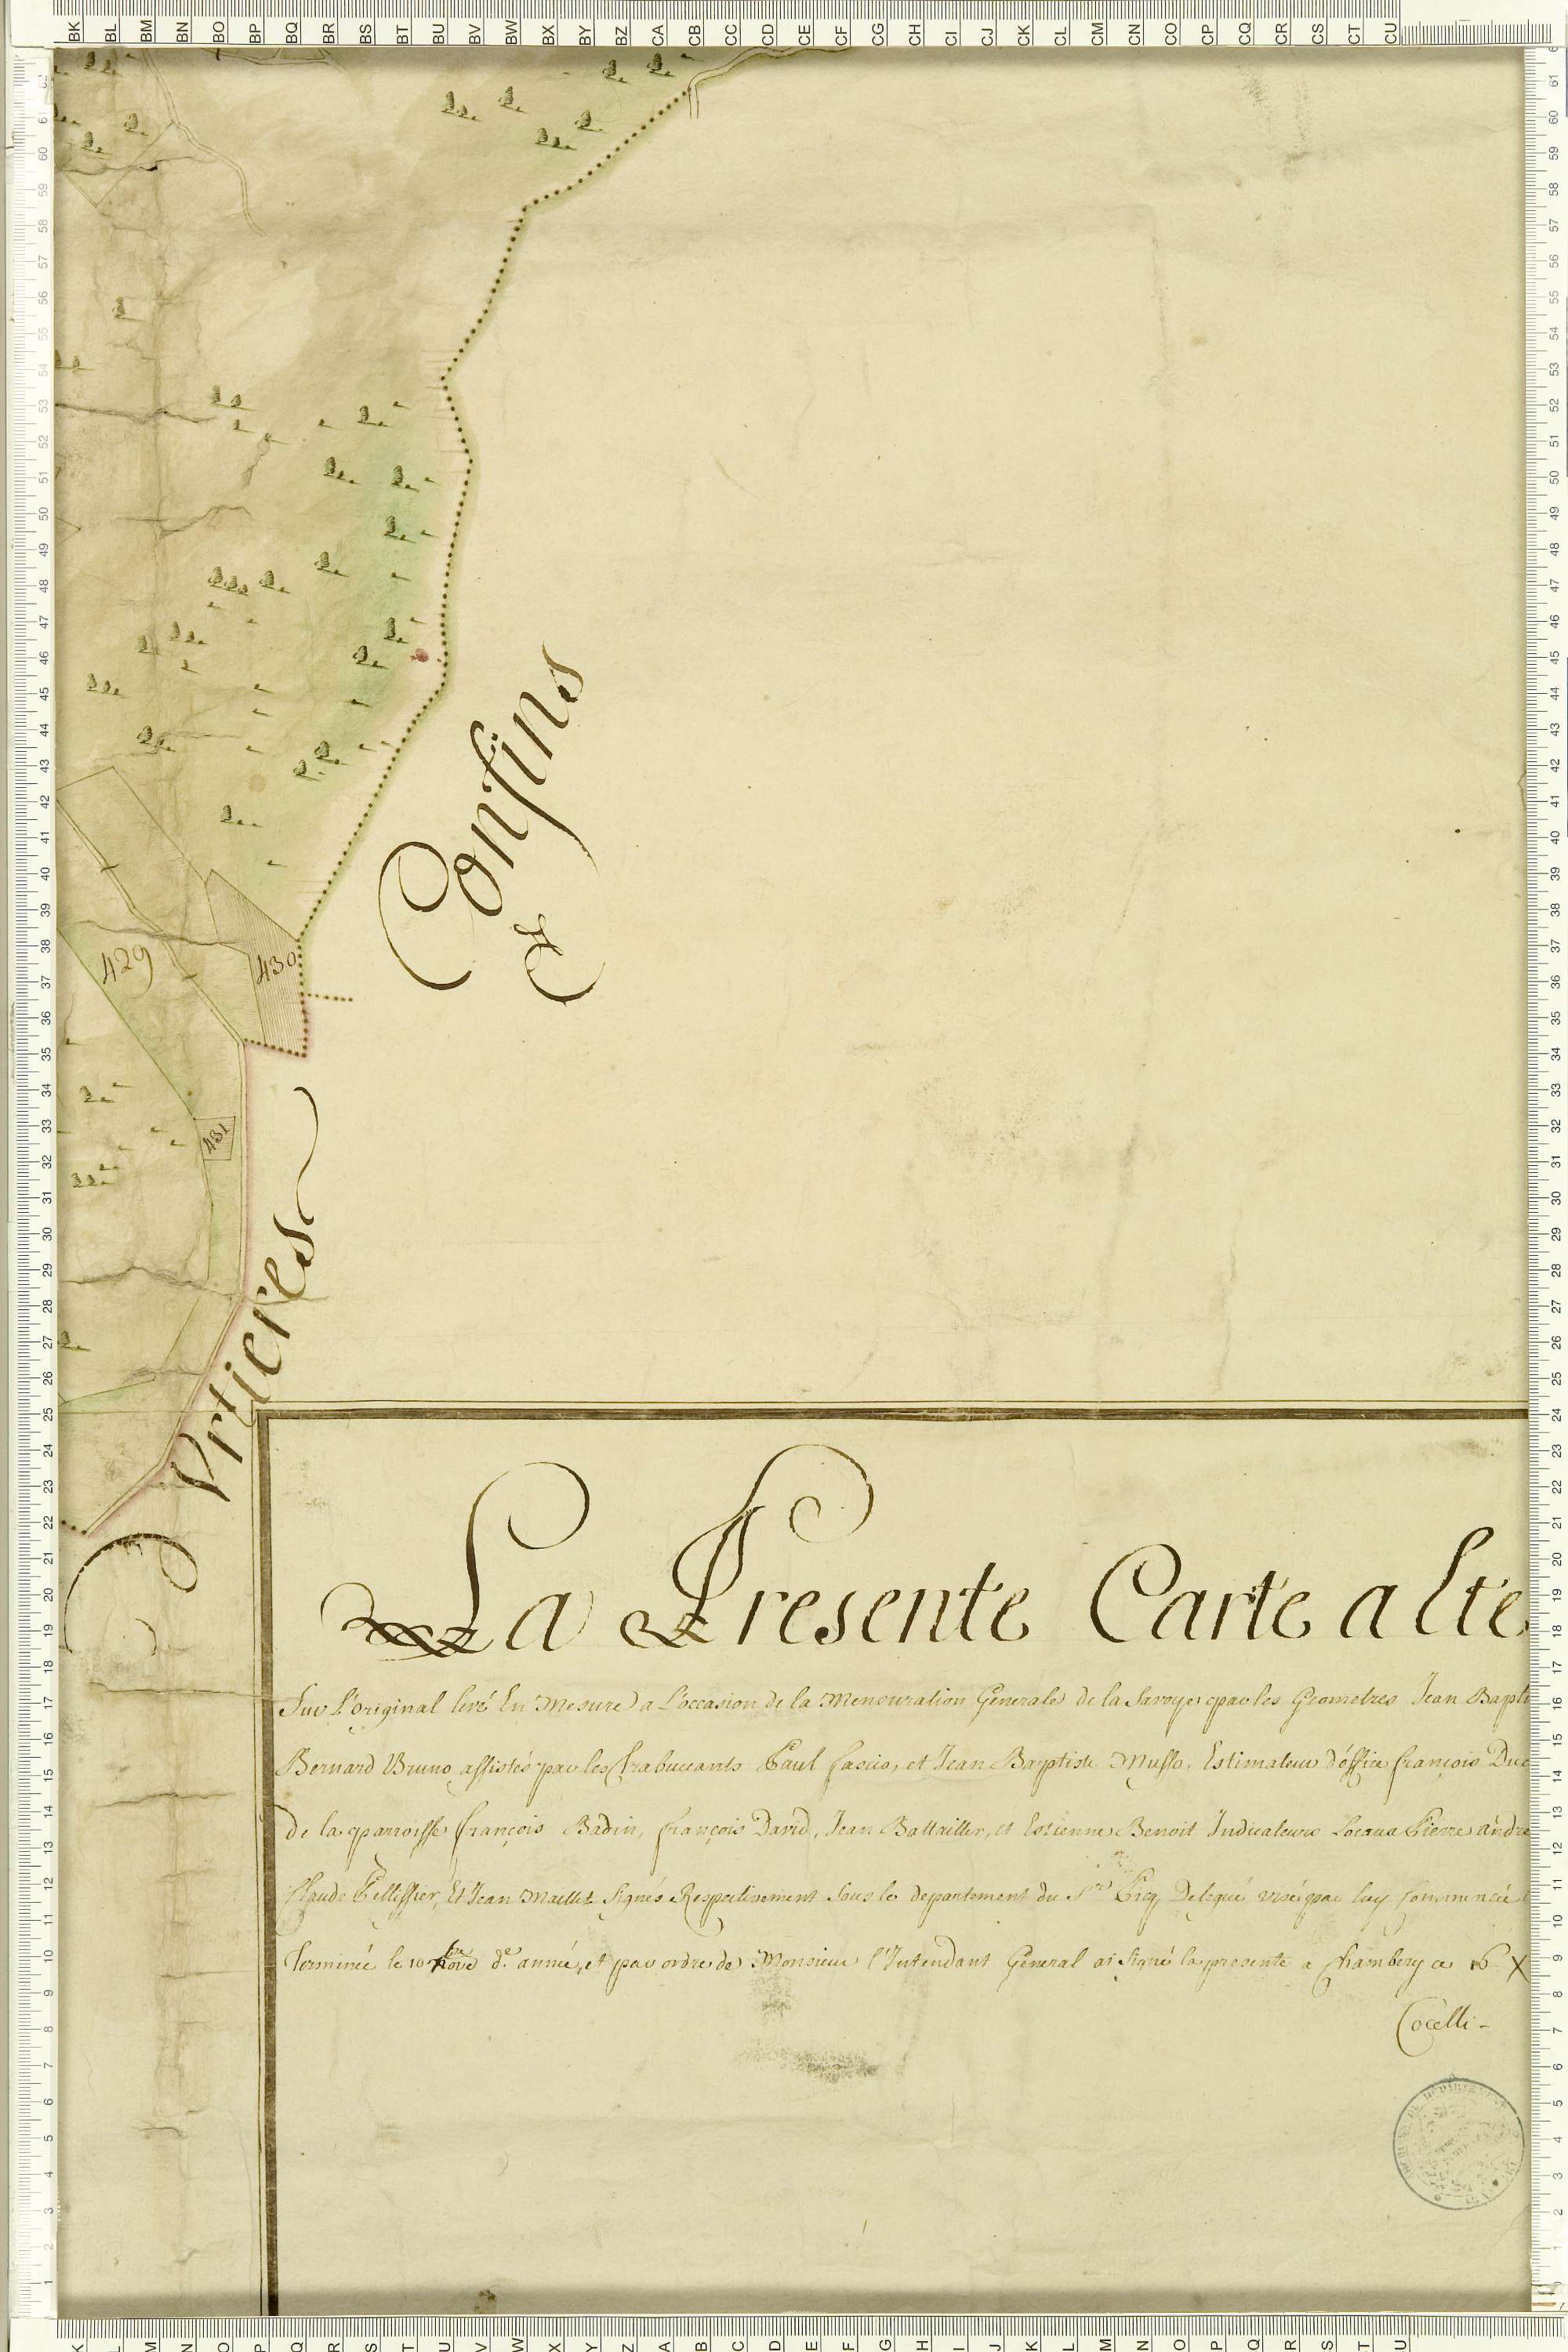 BK BL BM BN BO BP BQ BR BS BT BU BV BW BX BY BZ CA CB CC CD CE CF CG CH CI CJ CK CL CM CN CO CP CQ CR CS CT CU
429
430
431
Confins
&
Urtieres
La Presente Carte a Ete
Sur L'original levé En Mesure a L'occasion de la Mensuration Generale de la Savoye par les Geometres Jean Bapti
Bernard Bruno assistés par les Trabuccants Paul fascio, et Jean Baptiste Musso, Estimateur d'office françois Duc
de la parroisse françois Badin, françois David, Jean Battailler, et Estienne Benoit Indicateurs Locaux Pierre andre
Claude Pellissier, Et Jean Maillet Signés Respectivement sous le departement du Sr Delegué visé par luy Commencée
Terminée le 10 d.e année, et par ordre de Monsieur l'Intendant General ai signé la presente a Chambery ce 6 X
Cocelli